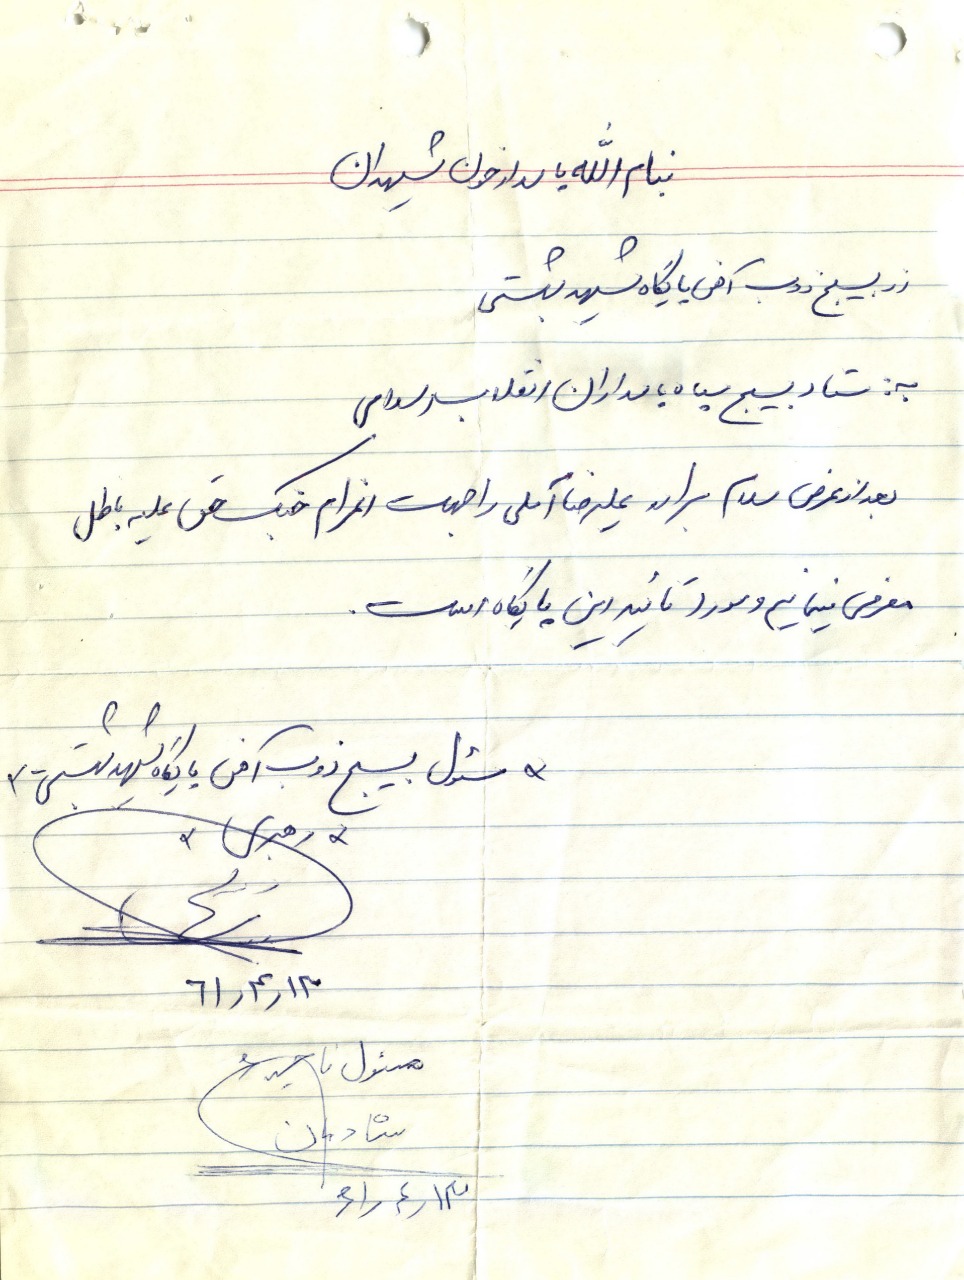 بنام الله پاسدار خون شهیدان
از: بسیج ذوب آهن پایگاه شهید بهشتی
به: ستاد بسیج سپاه پاسداران انقلاب اسلامی
بعد از عرض سلام برادر علیرضا آملی را جهت اعزام جنگ حق علیه باطل
معرفی مینمائیم و مورد تائید این پایگاه است.
« مسئول بسیج ذوب آهن پایگاه شهید بهشتی - ۲
« رهبری »
۶۱٫۴٫۱۳
مسئول ناحیه
شادمان
۶۱٫۴٫۱۳